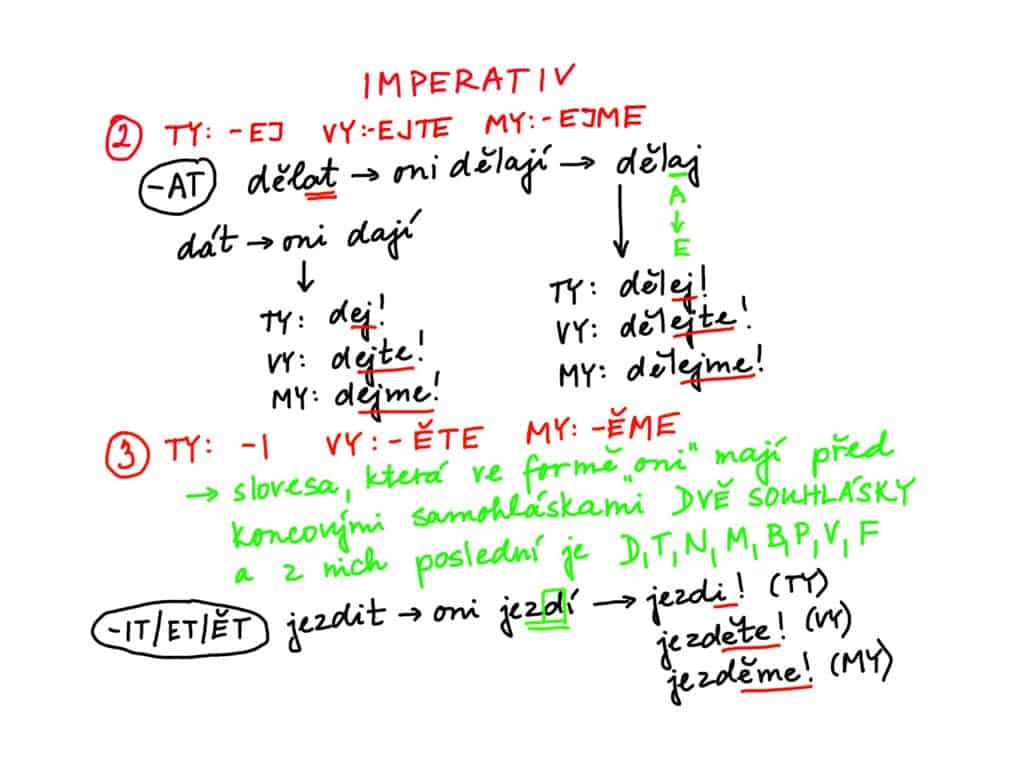 IMPERATIV
② TY: -EJ VY:-EJTE MY:-EJME
-AT dělat → oni dělají → dělaj
A
↓
E
dát → oni dají
↓
TY: dej!
VY: dejte!
MY: dejme!
TY: dělej!
VY: dělejte!
MY: dělejme!
③ TY: -I VY:-ĚTE MY:-ĚME
→ slovesa, která ve formě „oni" mají před
koncovými samohláskami DVĚ SOUHLÁSKY
a z nich poslední je D, T, N, M, B, P, V, F
-IT/ET/ĚT jezdit → oni jezdí → jezdi! (TY)
jezděte! (VY)
jezděme! (MY)